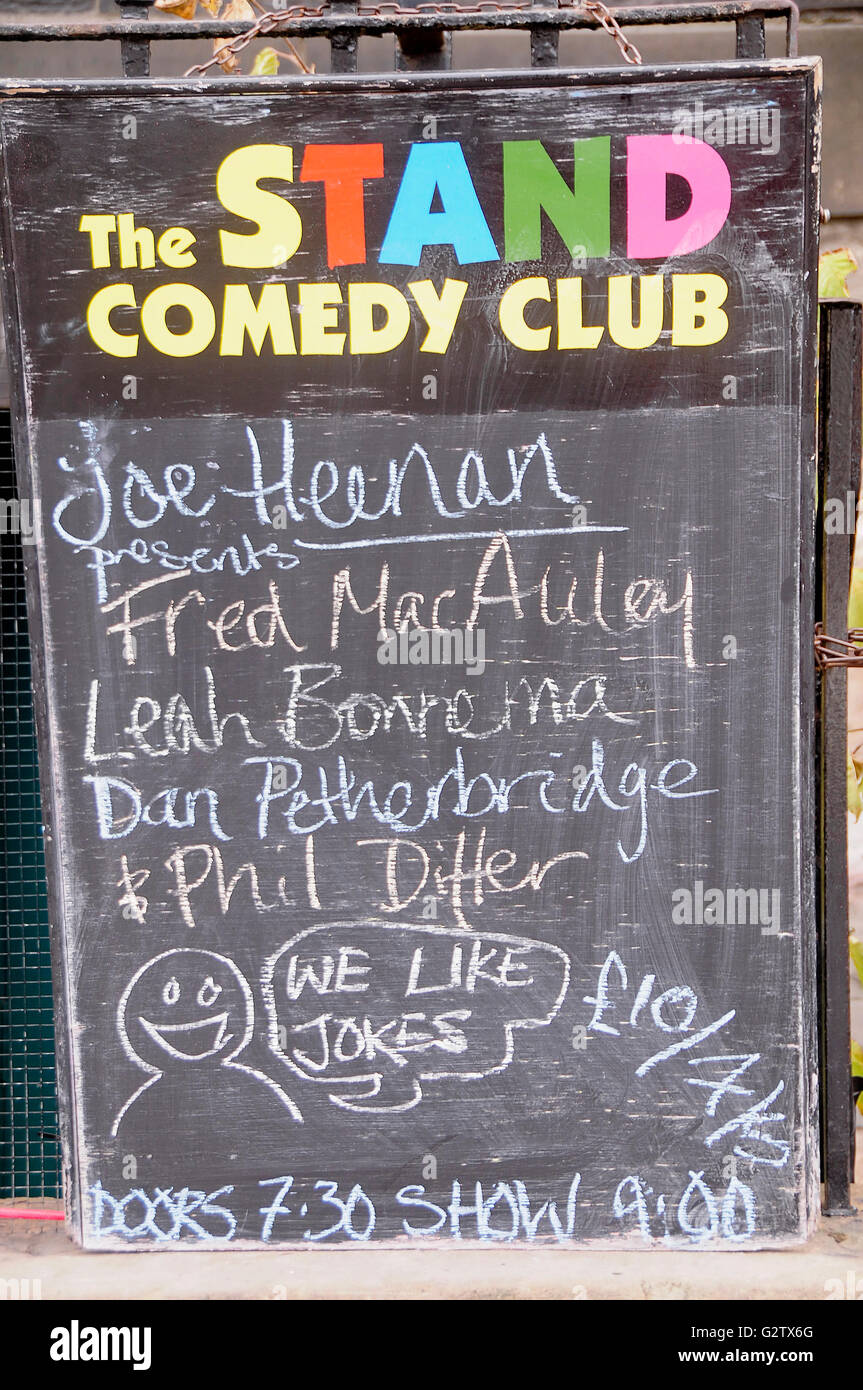 The STAND
COMEDY CLUB
Joe Heenan
presents
Fred MacAuley
Leah Bonnema
Dan Petherbridge
& Phil Differ
WE LIKE
JOKES
£10/7/5
DOORS 7.30 SHOW 9:00
alamy
Image ID: G2TX6G
www.alamy.com